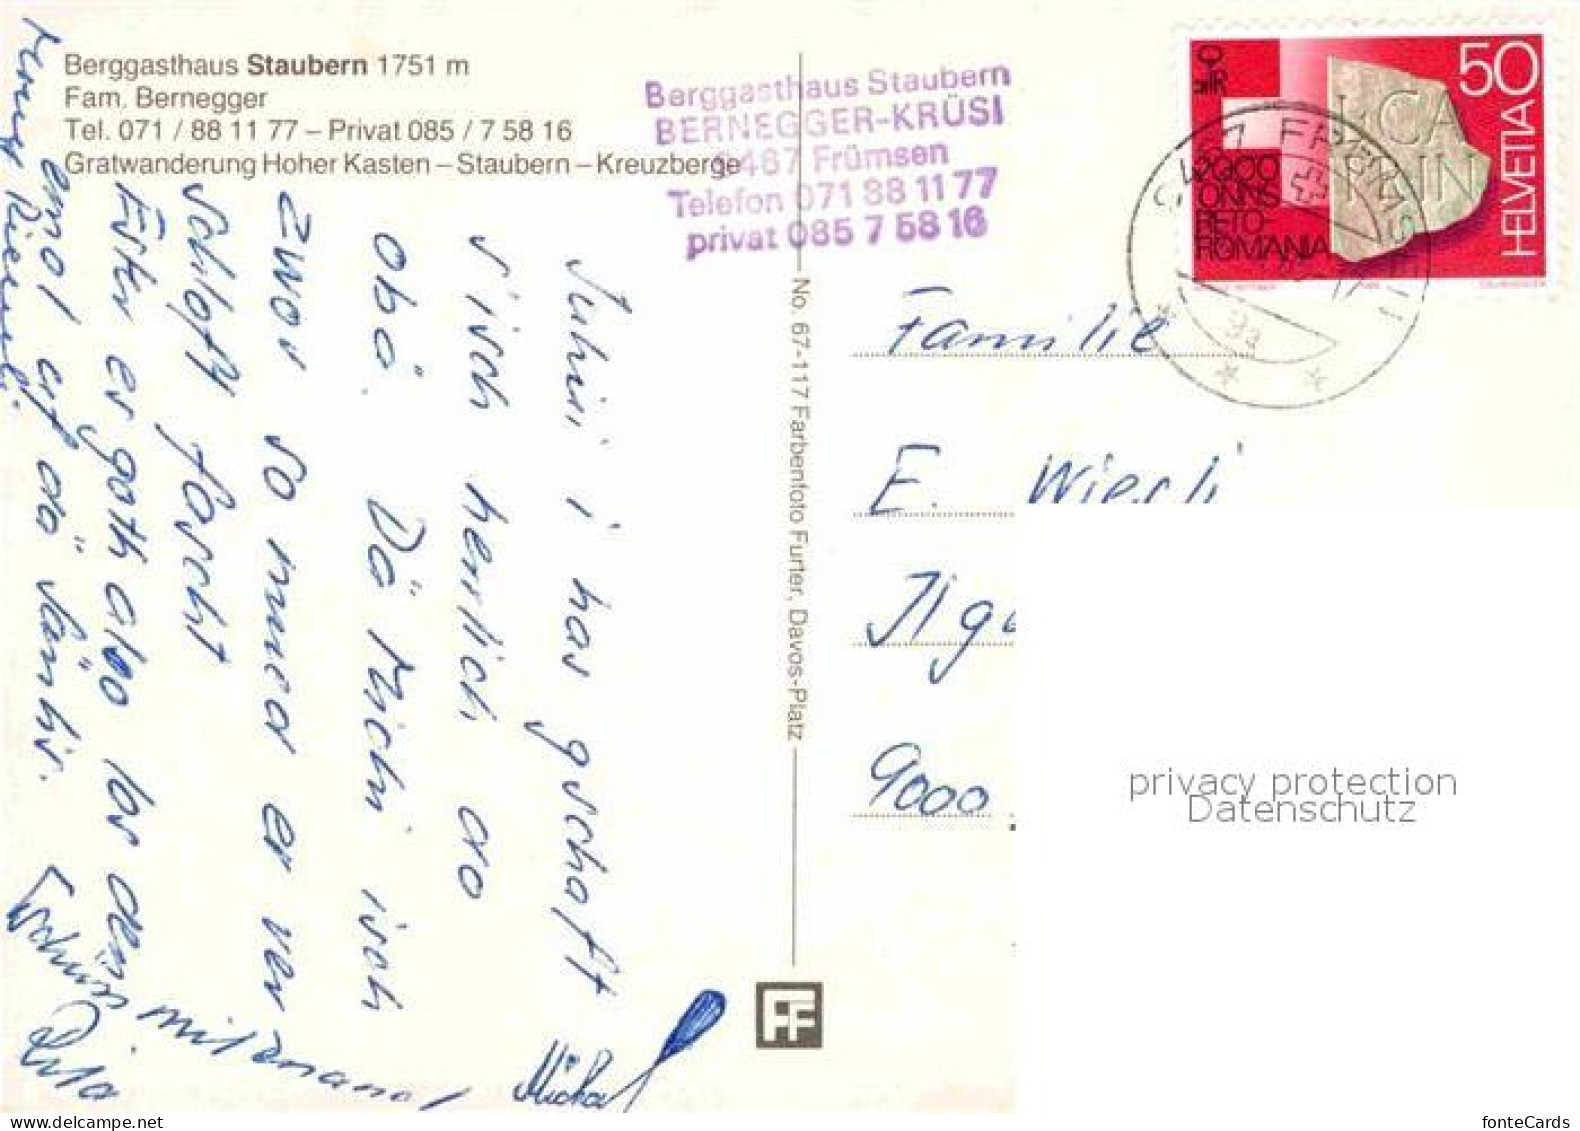 Berggasthaus Staubern 1751 m
Fam. Bernegger
Tel. 071 / 88 11 77 – Privat 085 / 7 58 16
Gratwanderung Hoher Kasten – Staubern – Kreuzberge
Berggasthaus Staubern
BERNEGGER-KRÜSI
9467 Frümsen
Telefon 071 88 11 77
privat 085 7 58 16
50
HELVETIA
2000
ONNS
RETO
ROMANIA
Juhui i has gschaft
s'isch herrlich do
obä. Dä Michi isch
zwor so immer er ver
schloft forscht
er goth also los
emol uf dä Säntis.
mit
Rita
Michael
No. 67-117 Farbenfoto Furter, Davos-Platz
FF
Familie
E.
9000
privacy protection
Datenschutz
fonteCards